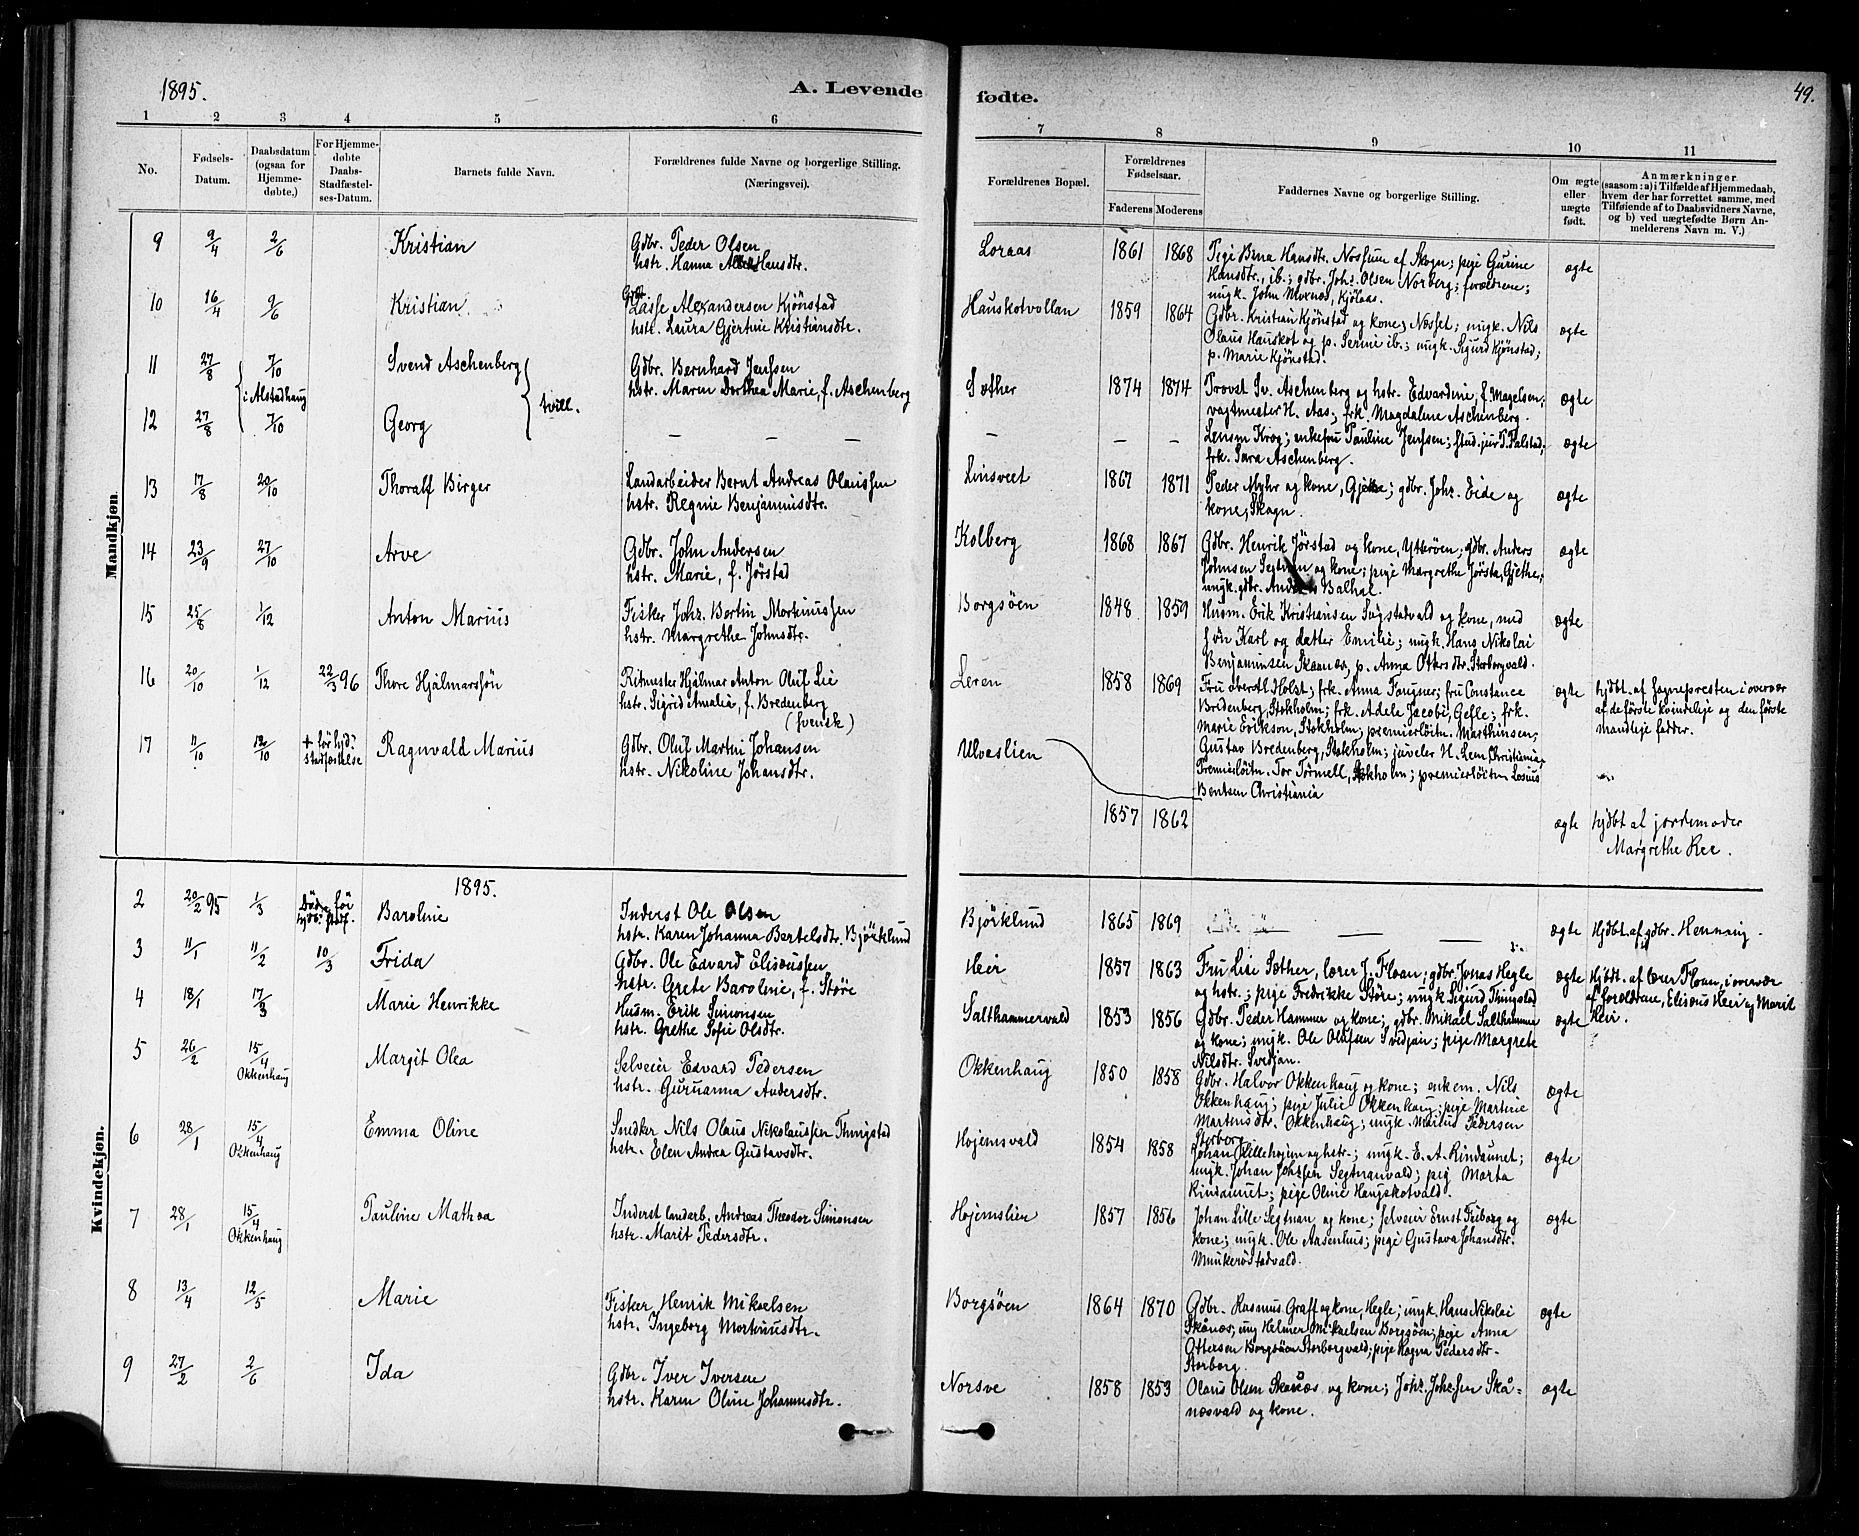 1895.
A. Levende
fødte.
49.
1 2 3 4 5 6 7 8 9 10 11
No.
Fødsels-Datum.
Daabsdatum (ogsaa for Hjemmedøbte.)
For Hjemmedøbte Daabs-Stadfæstelses-Datum.
Barnets fulde Navn.
Forældrenes fulde Navne og borgerlige Stilling. (Næringsvei).
Forældrenes Bopæl.
Forældrenes Fødselsaar.
Faderens Moderens
Faddernes Navne og borgerlige Stilling.
Om ægte eller uægte født.
Anmærkninger
(saasom: a) i Tilfælde af Hjemmedaab,
hvem der har forrettet samme, med
Tilføiende af to Daabsvidners Navne,
og b) ved uægtefødte Børn An-
melderens Navn m. V.)
Mandkjøn.
9 9/4 2/6 Kristian
Gdbr. Peder Olsen
hstr. Hanna Hansdtr.
Loraas 1861 1868
Pige Berna Hansdtr. Nossum af Skogn; pige Gurine
Hansdtr., ib.; gdbr. Johs. Olsen Norberg; forældrene;
ungk. John Moxnes, Kjølaas.
ægte
10 16/4 9/6 Kristian
Gdbr. Lasse Alexandersen Kjönstad
hstr. Laura Gjertine Kristiansdtr.
Hauskotvollan 1859 1864
Gdbr. Kristian Kjönstad og kone, Nesset; ungk. Nils
Olaus Hauskot og p. Serine ib.; ungk. Sigurd Kjönstad;
p. Marie Kjönstad.
ægte
11 27/8 7/10 i Alstadhaug Svend Aschenberg tvill.
Gdbr. Bernhard Jenssen
hstr. Maren Dorthea Marie, f. Aschenberg
Sæther 1874 1874
Provst Sv. Aschenberg og hstr. Edvardine, f. Magelsen;
vagtmester H. Aas; frk. Magdalene Aschenberg.
ægte
12 27/8 7/10 Georg
— — —
— — —
Lensm Krog; enkefru Pauline Jenssen; stud. jur. P. Falstad;
frk. Sara Aschenberg.
ægte
13 17/8 20/10 Thoralf Birger
Landarbeider Bernt Andreas Olaussen
hstr. Regine Benjaminsdtr.
Linsveet 1867 1871
Peder Myhr og kone, ; gdbr. Johs. Eide og
kone, Skogn.
ægte
14 23/9 27/10 Arve
Gdbr. John Andersen
hstr. Marie, f. Jörstad
Kolberg 1868 1867
Gdbr. Henrik Jörstad og kone, Ytteröen; gdbr. Anders
Johnsen Segtnan og kone; pige Margrethe Jörsta, Gjethe;
ungk. gdbr. Anders Balhal.
ægte
15 25/8 1/12 Anton Marius
Fisker Johs. Bertin Mortinussen
hstr. Margrethe Johnsdtr.
Borgsöen 1848 1859
Husm. Erik Kristiansen og kone, med
sön Karl og datter Emilie; ungk. Hans Nikolai
Benjaminsen Skaanes, p. Anna Ottersdtr. Storborgvald.
ægte
16 20/10 1/12 22/3 96 Thore Hjalmarssön
Ritmester Hjalmar Anton Oluf Lie
hstr. Sigrid Amalia, f. Bredenberg
(svensk)
Leren 1858 1869
Fru oberstl Holst; frk. Anna Faugner; fru Constance
Bredenberg, Stokholm; frk. Adele Jacobi, Gefle; frk.
Marie Erikson, Stokholm; premierlöitn. Marthinsen;
Gustav Bredenberg, Stokholm; juveler H. Lem Christiania
Premierlöitn. Tor Törnell, Stokholm; premierlöitn
Bentsen Christiania
ægte
hjdbt. af sognepresten i overvær
af de förste kvindelige og den förste
mandlige fadder.
17 11/10 12/10 + för hjd. stadfæstelse Ragnvald Marius
Gdbr. Oluf Martin Johansen
hstr. Nikoline Johansdtr.
Ulveslien
1857 1862 ægte
hjdbt af jordemoder
Margrethe Ree.
Kvindekjøn.
1895.
2 20/2 95 1/3 Död för hjdb. stadf. Baroline
Inderst Ole Olsen
hstr. Karen Johanna Bertelsdtr. Björklund
Björklund 1865 1869 — —
ægte
Hjdbt. af gdbr. Henning.
3 11/1 11/2 10/3 Frida
Gdbr. Ole Edvard Eliseussen
hstr. Grete Baroline, f. Störe
Heir 1857 1863
Fru Lise Sæther, lærer J. Floan; gdbr. Jonas Hegle
og hstr.; pige Fredrikke Störe; ungk Sigurd Thingstad
ægte
Hjdbt. af lærer Floan, i overvær
af forældrene, Eliseus Heir og Marit
Heir.
4 18/1 17/3 Marie Henrikke
Husm. Erik Simonsen
hstr. Grethe Sofie Olsdtr.
Salthammervald 1853 1856
Gdbr. Peder Hammer og kone; gdbr. Mikael Salthammer
og kone; ungk. Ole Olufsen Svedjan; pige Margrete
Nilsdtr. Svedjan.
ægte
5 26/2 15/4 Okkenhaug Margit Olea
Selveier Edvard Pedersen
hstr. Guruanna Andersdtr.
Okkenhaug 1850 1858
Gdbr. Halvor Okkenhaug og kone; enkem. Nils
Okkenhaug; pige Julie Okkenhaug; pige Martine
Martinsdtr. Okkenhaug; ungk. Marius Pedersen
Storborg
ægte
6 28/1 15/4 Okkenhaug Emma Oline
Snedker Nils Olaus Nikolaussen Thingstad
hstr. Elen Andrea Gustavsdtr.
Hojemsvald 1854 1858
Johan Lillehojem og hstr.; ungk. E. A. Rindaunet;
ungk. Johan Johssen Segtnanvald; pig Marta
Rindaunet; pige Oline Hauskotvald.
ægte
7 28/1 15/4 Okkenhaug Pauline Mathea
Inderst landarb. Andreas Theodor Simonsen
hstr. Marit Pedersdtr.
Hojemslien 1857 1856
Johan Lille Segtnan og kone; selveier Ernst Friborg og
kone; ungk. Ole Aasenhus; pige Gustava Johansdtr.
Munkeröstadvald.
ægte
8 13/4 12/5 Marie
Fisker Henrik Mikaelsen
hstr. Ingeborg Mortinusdtr.
Borgsöen 1864 1870
Gdbr. Rasmus Graft og kone, Hegle; ungk. Hans Nikolai
Skånes; ung Helmer Mikaelsen Borgsöen; pige Anna
Ottersen Borgsöen Storborgvald; pige Ragna Pedersdtr.
Storborg
ægte
9 27/2 2/6 Ida
Gdbr. Iver Iversen
hstr. Karen Oline Johannesdtr.
Norsve 1858 1853
Olaus Olsen Skånes og kone; Johs. Johssen Skå-
nesvald og kone.
ægte